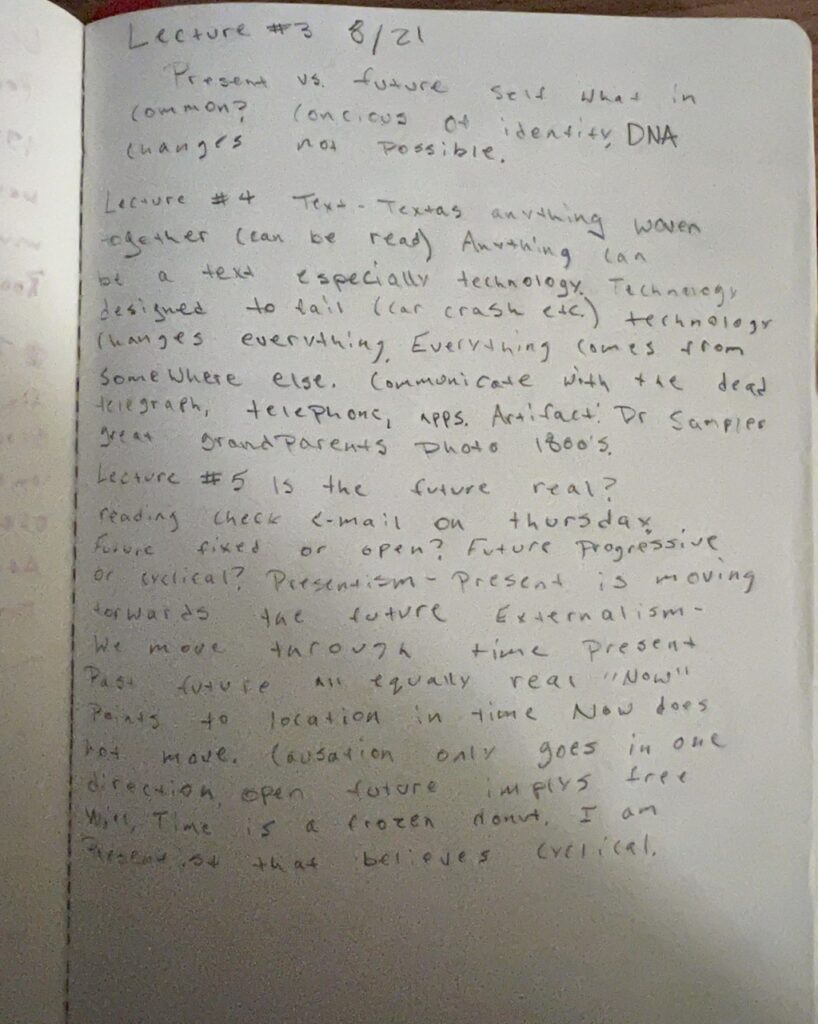 Lecture #3 8/21
Present vs. future self what in
common? Concious of identity, DNA
changes not possible.
Lecture #4 Text - Textas anything woven
together (can be read) Anything can
be a text especially technology. Technology
designed to fail (car crash etc.) technology
changes everything. Everything comes from
somewhere else. Communicate with the dead
telegraph, telephone, apps. Artifact: Dr Sampler
great grandparents photo 1800's.
Lecture #5 Is the future real?
reading check e-mail on thursday.
Future fixed or open? Future Progressive
or cyclical? Presentism - Present is moving
forwards the future Externalism -
We move through time Present
Past future all equally real "Now"
Points to location in time Now does
not move. Causation only goes in one
direction, open future implys free
will, Time is a frozen donut. I am
Presentist that believes cyclical.